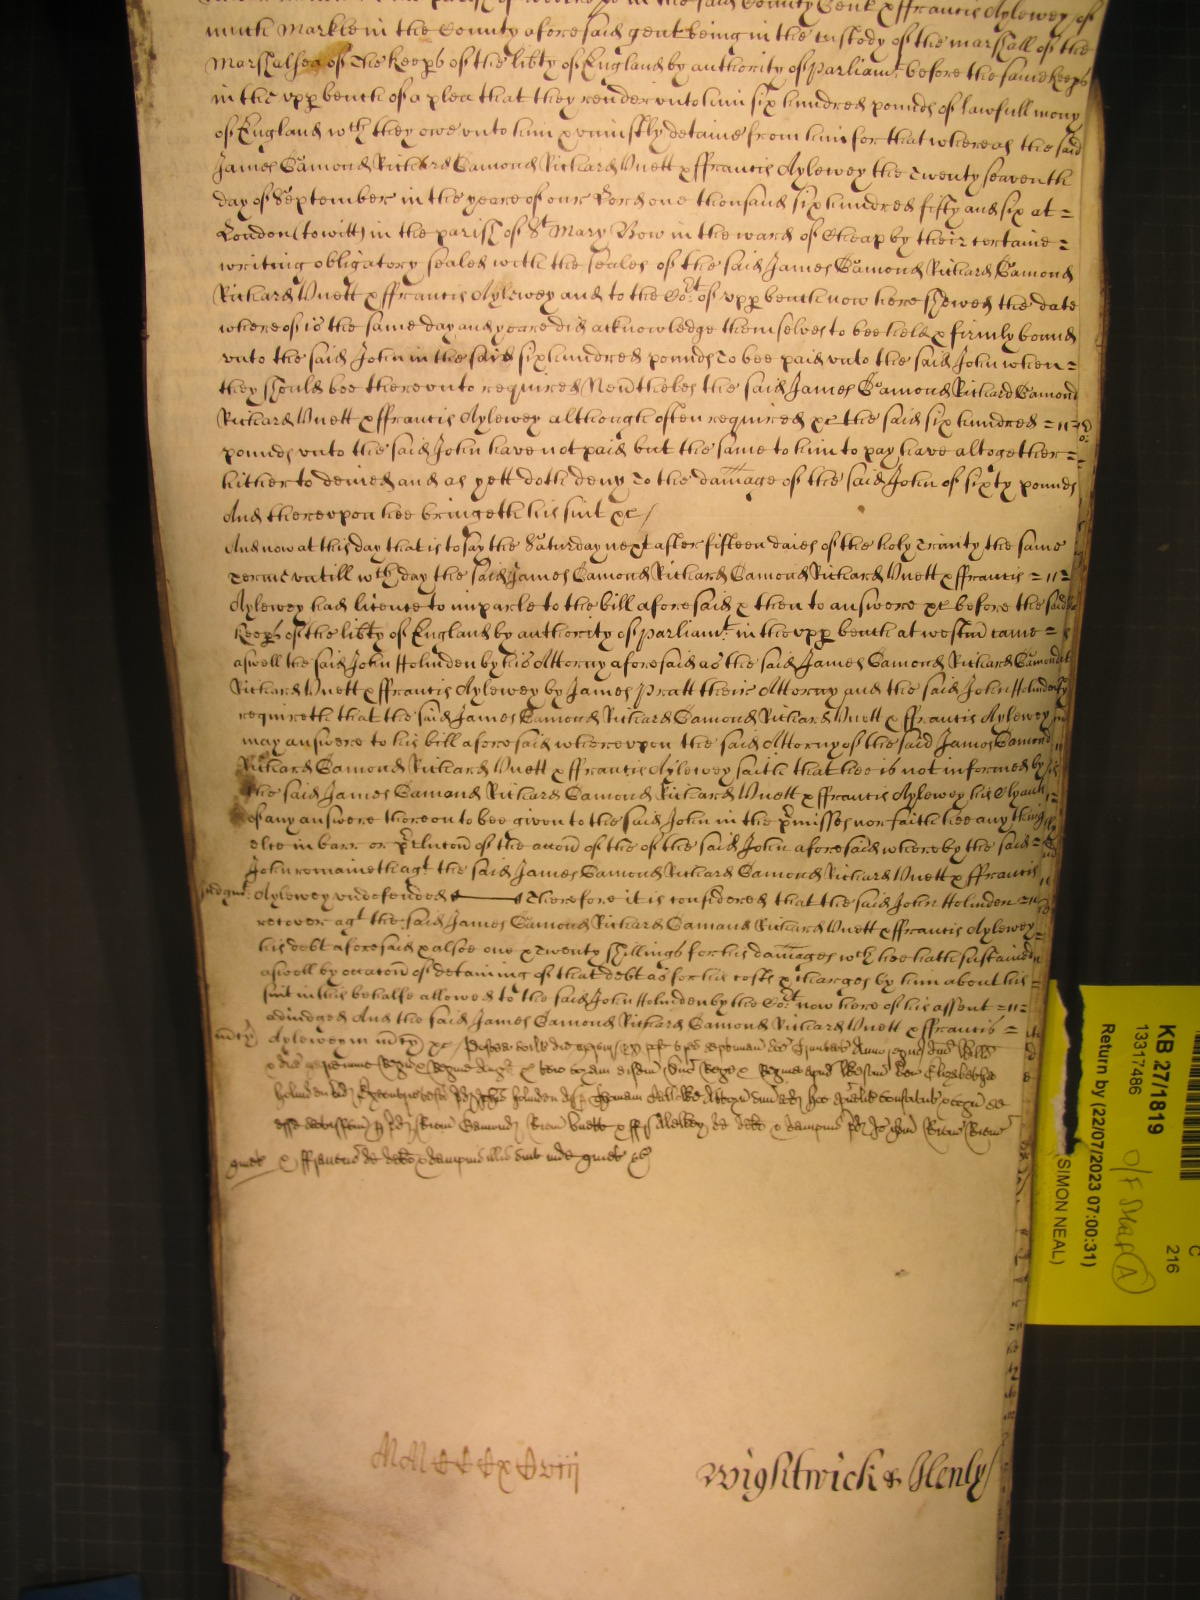 in the said County Gent & ffrancis Aylewey of
much Markle in the County aforesaid gent being in the custody of the marshall of the
Marshalsea of the Keepers of the libty of England by authority of parliamt before the same Keeps
in the upp bench of a plea that they render unto him six hundred pounds of lawfull mony
of England wch they owe unto him & uniustly detaine from him for that whereas the said
James Gamond Richard Gamond Richard Unett & ffrancis Aylewey the Twenty seaventh
day of September in the yeare of our Lord one thousand six hundred fifty and six at =
London (to witt) in the parish of St Mary Bow in the ward of Cheap by their certaine =
writing obligatory sealed with the seales of the said James Gamond Richard Gamond
Richard Unett & ffrancis Aylewey and to the Cort of upp bench now here shewed the date
whereof is the same day and yeare did acknowledge themselves to bee held & firmly bound
unto the said John in the said six hundred pounds To bee paid unto the said John when =
they should bee thereunto required Nevtheles the said James Gamond Richard Gamond
Richard Unett & ffrancis Aylewey although often required &c the said six hundred =
pounds unto the said John have not paid but the same to him to pay have altogether =
hitherto denied and as yett doth deny To the damage of the said John of sixty pounds
And thereupon hee bringeth his suit &c /
And now at this day that is to say the Saturday next after fifteen daies of the holy Trinity the same
Terme untill wch day the said James Gamond Richard Gamond Richard Unett & ffrancis =
Aylewey had licence to imparle to the bill aforesaid & then to answere &c before the said
Keeps of the libty of England by authority of parliamt in the upp bench at westm came =
aswell the said John Holmden by his Attorny aforesaid as the said James Gamond Richard Gamond
Richard Unett & ffrancis Aylewey by James Pratt their Attorny and the said John Holmden
requireth that the said James Gamond Richard Gamond Richard Unett & ffrancis Aylewey
may answere to his bill aforesaid whereupon the said Attorny of the said James Gamond
Richard Gamond Richard Unett & ffrancis Aylewey saith that hee is not informed by
the said James Gamond Richard Gamond Richard Unett & ffrancis Aylewey his Clyants
of any answere thereon to bee given to the said John in the pmisses nor saith hee any thing
else in barr or pclucon of the accon of the of the said John aforesaid whereby the said =
John remaineth agt the said James Gamond Richard Gamond Richard Unett & ffrancis
Judgmt Aylewey undefended Therefore it is considered that the said John Holmden =
recover agt the said James Gamond Richard Gamond Richard Unett & ffrancis Aylewey
his debt aforesaid & alsoe one & Twenty shillings for his damages wch hee hath sustained
aswell by occacon of detaining of that debt as for his costs & charges by him about his =
suit in his behalfe allowed to the said John Holmden by the Cort now here of his assent =
adiudged And the said James Gamond Richard Gamond Richard Unett & ffrancis =
in mcy Aylewey in mcy &c / Postea
Elizabetha
Holmden
Gamond Unett & ffr Alewey de debo & dampnis
quiet & ffranciscus de debo & dampnis illis sint inde quiet &c
Wightwick & Henly
KB 27/1819
13317486
Return by (22/07/2023 07:00:31)
SIMON NEAL)
O/F Staff A
C
216